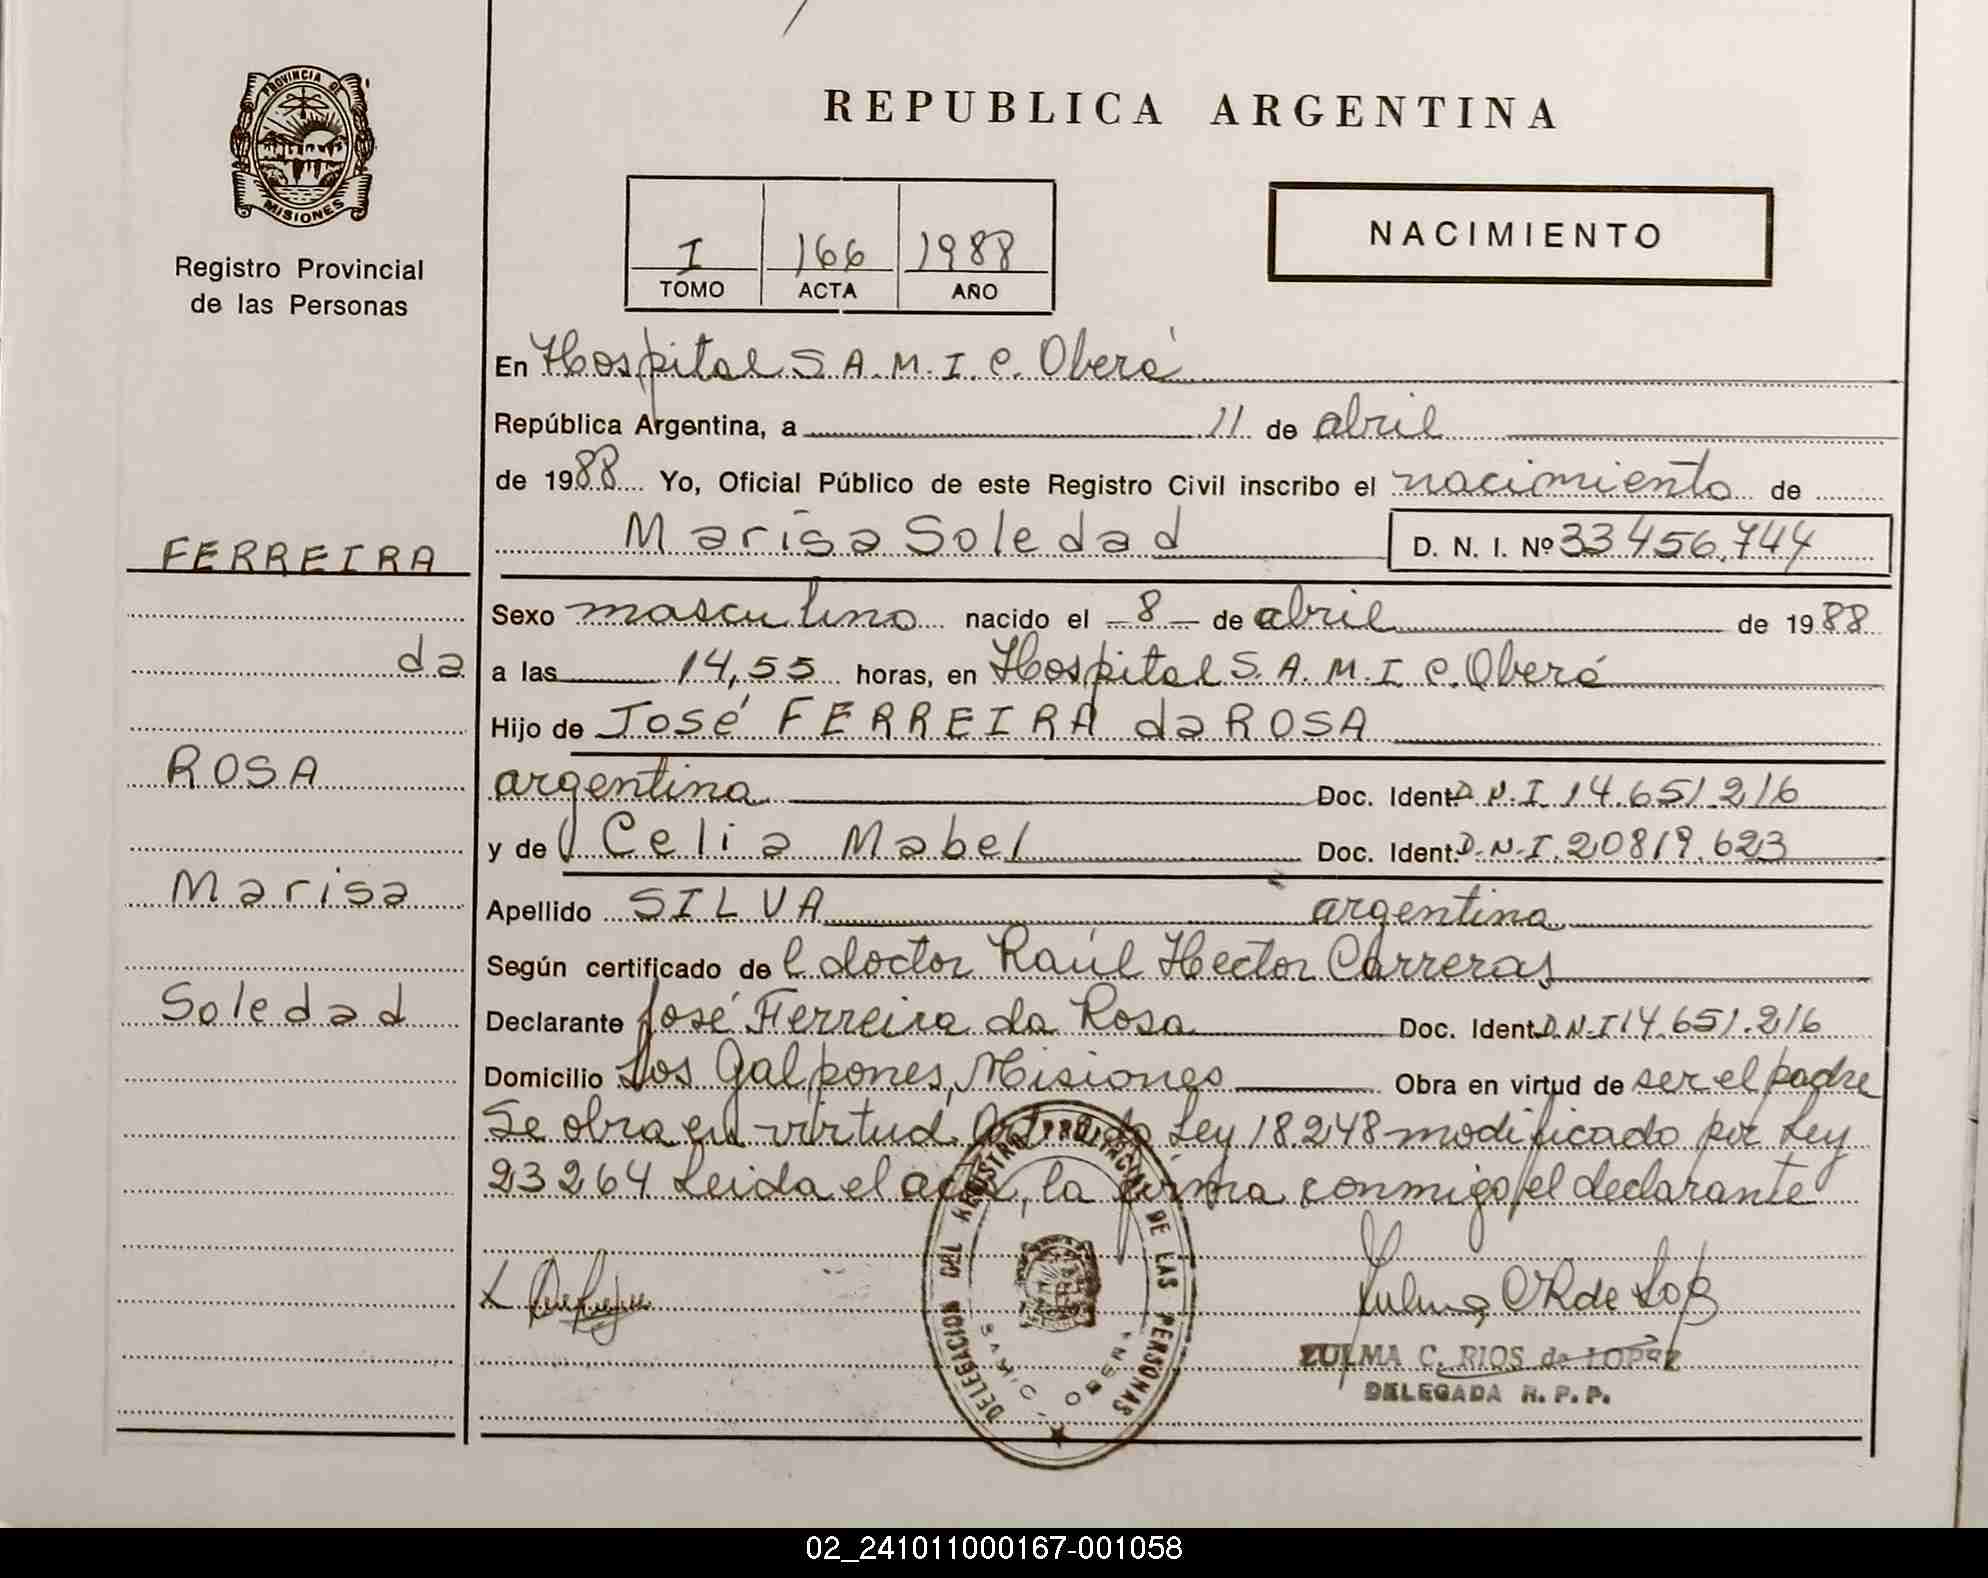 PROVINCIA DE
MISIONES
Registro Provincial
de las Personas
FERREIRA
da
ROSA
Marisa
Soledad
REPUBLICA ARGENTINA
I 166 1988
TOMO ACTA AÑO
NACIMIENTO
En Hospital S.A.M.I.C. Oberá
República Argentina, a 11 de abril
de 1988 Yo, Oficial Público de este Registro Civil inscribo el nacimiento de
Marisa Soledad D. N. I. Nº 33456.744
Sexo masculino nacido el 8 de abril de 1988
a las 14,55 horas, en Hospital S.A.M.I.C. Oberá
Hijo de José FERREIRA da ROSA
argentina Doc. Ident. D.N.I 14.651.216
y de Celia Mabel Doc. Ident. D.N.I. 20819.623
Apellido SILVA argentina
Según certificado del doctor Raúl Hector Carreras
Declarante José Ferreira da Rosa Doc. Ident. D.N.I 14.651.216
Domicilio Los Galpones, Misiones Obra en virtud de ser el padre
Se obra en virtud Ley 18.248 modificado por Ley
23264 Leida el acta, la firma conmigo el declarante
DELEGACION DEL REGISTRO PROVINCIAL DE LAS PERSONAS
ZULMA C. RIOS de LOPEZ
DELEGADA R. P. P.
02_241011000167-001058